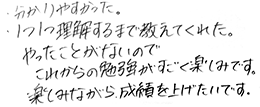 ・分かりやすかった。
・1つ1つ理解するまで教えてくれた。
やったことがないので
これからの勉強がすごく楽しみです。
・楽しみながら、成績を上げたいです。